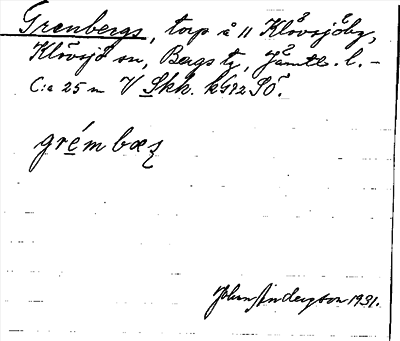 Grenbergs, torp å 11 Klövsjöby,
Klövsjö sn, Bergs tg, Jämtl. l. -
C:a 25 m V Skh. kG22SÖ.
grémbæʒ
Johan Anderson 1931.